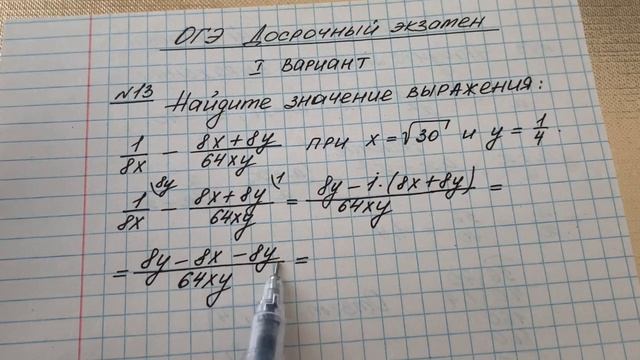 ОГЭ Досрочный экзамен
I вариант
№13 Найдите значение выражения:
1/8x - (8x+8y)/64xy при x=√30 и y=1/4.
1/8x \8y - (8x+8y)/64xy \1 = (8y-1·(8x+8y))/64xy =
= (8y-8x-8y)/64xy =